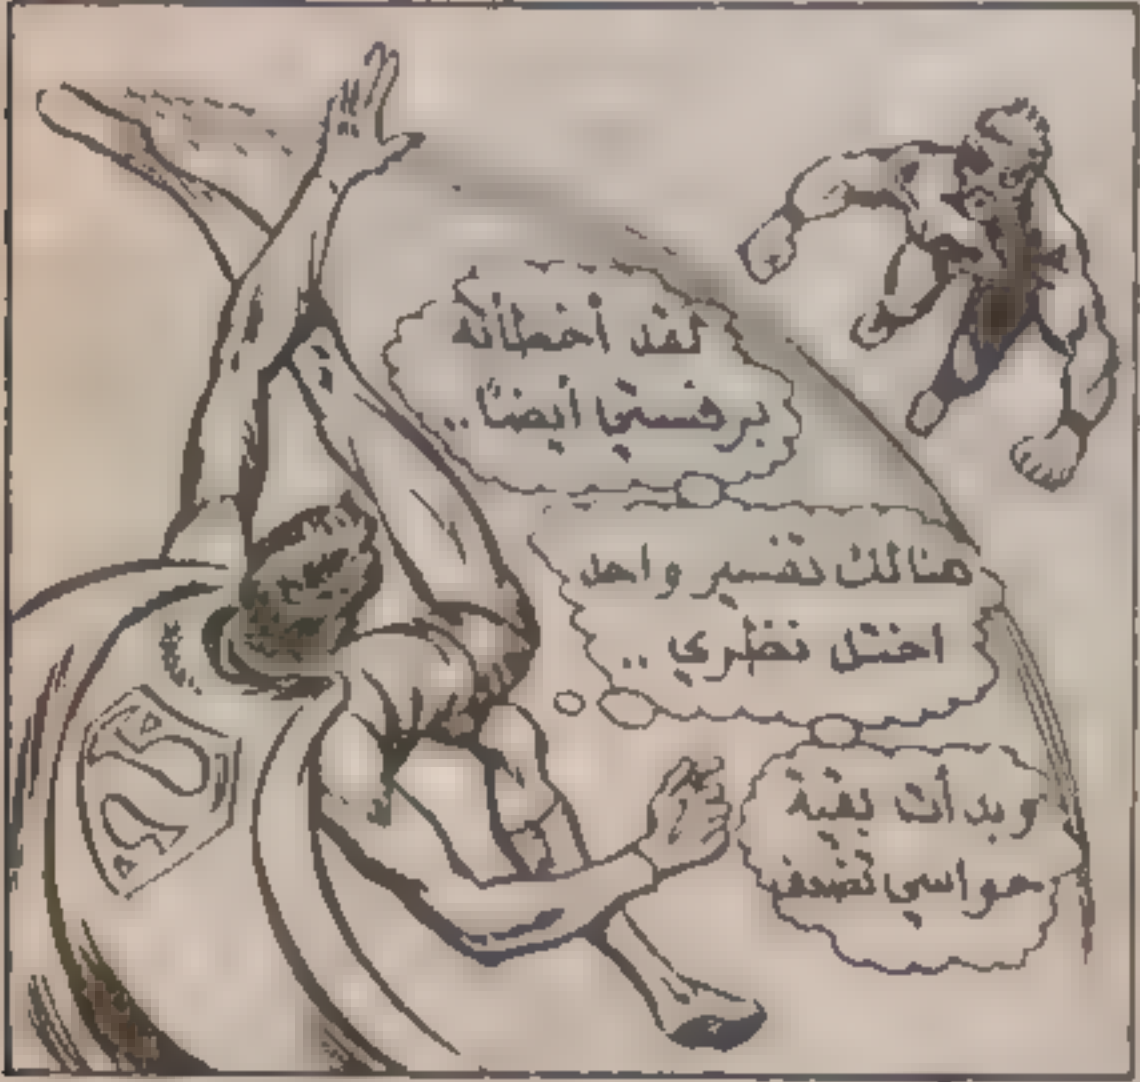 لقد أخطأته
برفستي أيضًا..
هنالك تفسير واحد
اختل نظري ..
وبدأت بقية
حواسي تضعف